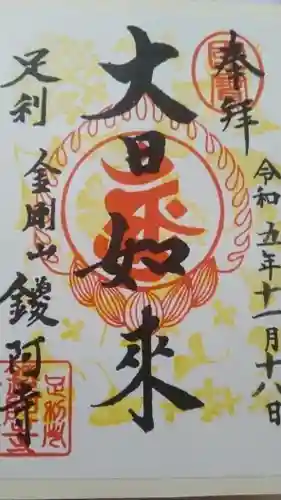 奉拝
令和五年十一月十八日
大日如来
足利
金剛山
鑁阿寺